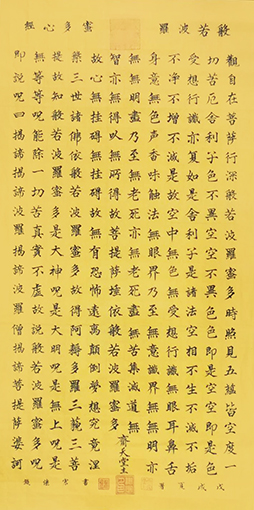 般若波羅蜜多心經
觀自在菩薩行深般若波羅蜜多時照見五蘊皆空度一
切苦厄舍利子色不異空空不異色色即是空空即是色
受想行識亦復如是舍利子是諸法空相不生不滅不垢
不淨不增不減是故空中無色無受想行識無眼耳鼻舌
身意無色聲香味觸法無眼界乃至無意識界無無明亦
無無明盡乃至無老死亦無老死盡無苦集滅道無
智亦無得以無所得故菩提薩埵依般若波羅蜜多
故心無挂碍無挂碍故無有恐怖遠離顛倒夢想究竟涅
槃三世諸佛依般若波羅蜜多故得阿耨多羅三藐三菩
提故知般若波羅蜜多是大神呪是大明呪是無上呪是
無等等呪能除一切苦真實不虛故說般若波羅蜜多呪
即說呪曰揭諦揭諦波羅揭諦波羅僧揭諦菩提薩婆訶